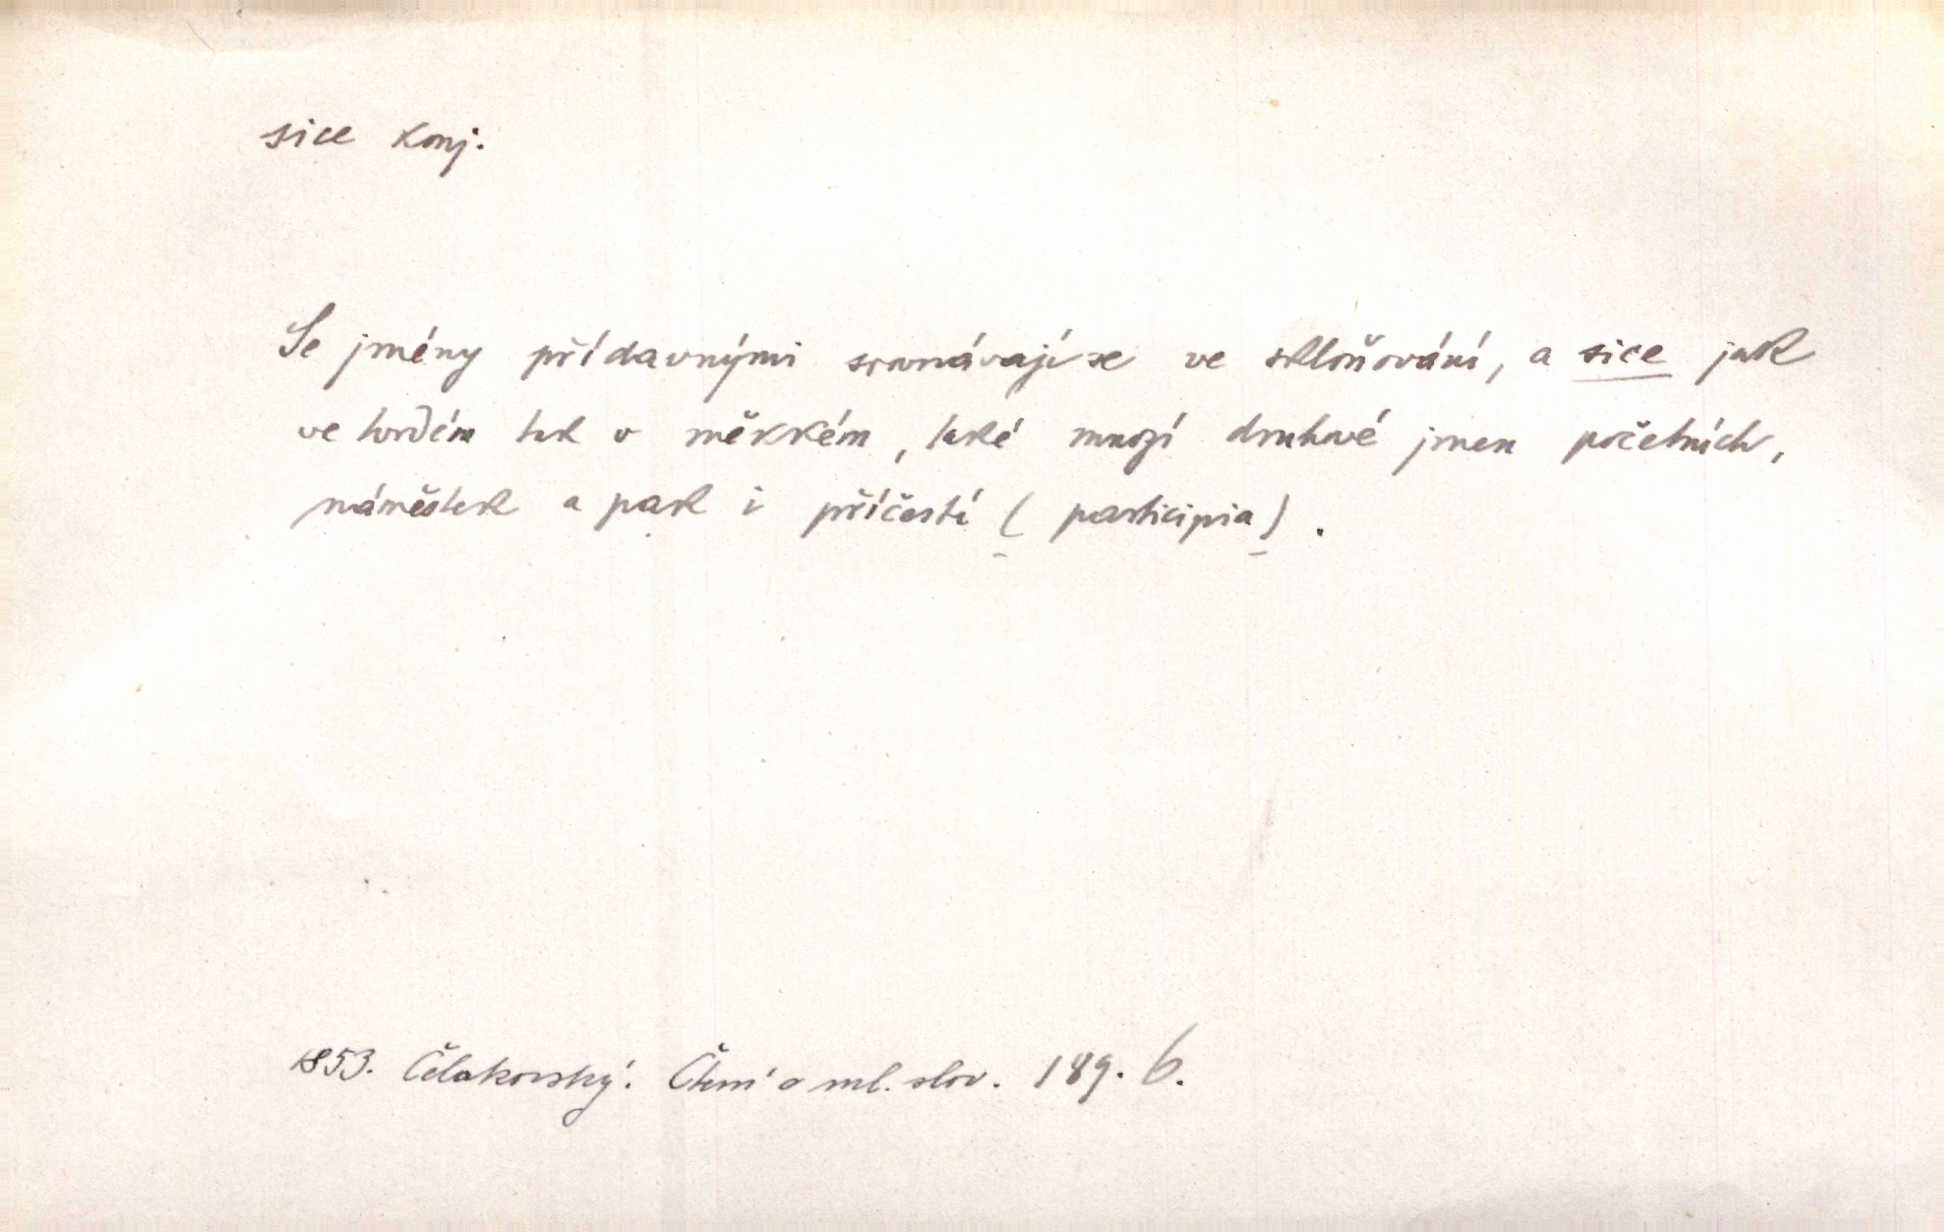 sice konj.
Se jmény přídavnými srovnávají se ve skloňování, a sice jak
ve tvrdém tak v měkkém, také mnozí druhové jmen početních,
náměstek a pak i příčestí (participia).
1853. Čelakovský. Čtení o ml. slov. 189. 6.